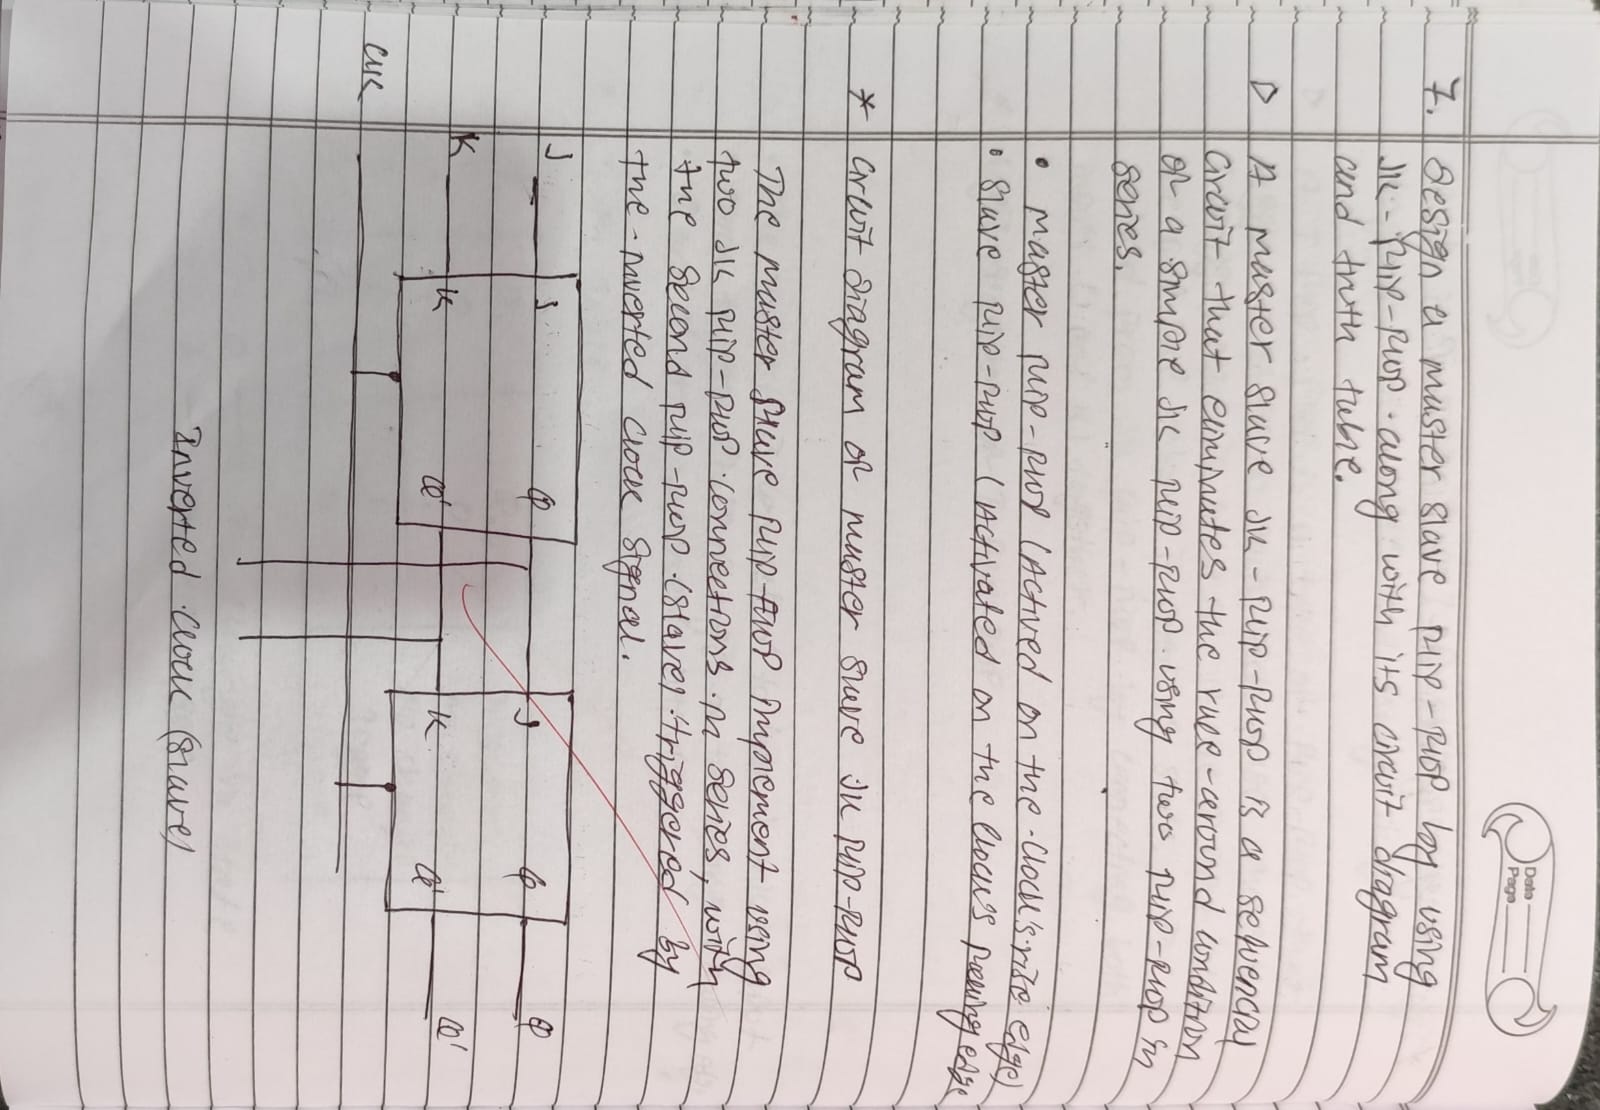 Date
Page
7. Design a master slave flip-flop by using
JK-flip-flop along with its circuit diagram
and truth table.
A master slave JK-flip-flop is a sequencial
circuit that eliminates the race-around condition
of a simple JK flip-flop using two flip-flop in
series.
• master flip-flop (Actived on the clock's rise edge)
• Slave flip-flop (Activated on the clock's falling edge
* circuit diagram of master slave JK flip-flop
The master slave flip-flop implement using
two JK flip-flop connections in series, with
the second flip-flop (slave) triggered by
the inverted clock signal.
J J Q J Q Q
K K Q' K Q' Q'
CLK
Inverted clock (slave)